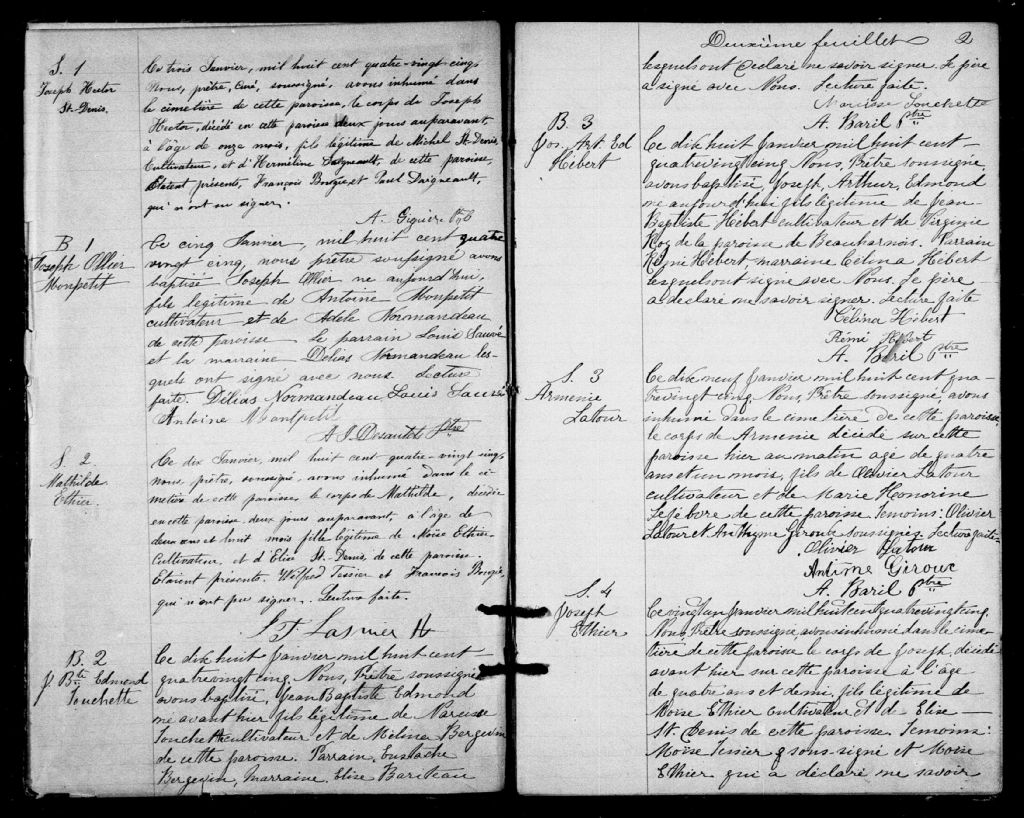 S. 1
Joseph Hector
St-Denis.
Ce trois Janvier, mil huit cent quatre-vingt-cinq
Nous, prêtre, Curé, soussigné, avons inhumé dans
le cimetière de cette paroisse, le corps de Joseph
Hector, décédé en cette paroisse deux jours auparavant,
à l'âge de onze mois, fils légitime de Michel St-Denis,
Cultivateur, et d'Hermeline Daigneault, de cette paroisse,
Etaient présents, François Bougie, et Paul Daigneault,
qui n'ont su signer.
A. Giguère Ptre
B 1
Joseph Ollier
Monpetit
Ce cinq Janvier, mil huit cent quatre
vingt cinq, nous prêtre soussigné avons
baptisé Joseph Ollier né aujourd'hui,
fils legitime de Antoine Monpetit
cultivateur et de Adèle Normandeau
de cette paroisse Le parrain Louis Sauvé
et la marraine Délias Normandeau les-
quels ont signé avec nous. Lecture
faite. Délias Normandeau, Louis Sauvé
Antoine Montpetit
A. J. Desautel Ptre
S. 2.
Mathilde
Ethier.
Ce dix Janvier, mil huit cent-quatre-vingt cinq
nous, prêtre, soussigné, avons inhumé dans le ci-
metière de cette paroisse le corps de Mathilde, décédée
en cette paroisse, deux jours auparavant, à l'âge de
deux ans et huit mois fille légitime de Moïse Ethier
Cultivateur, et d'Elise St-Denis de cette paroisse.
Etaient présents. Wilfred Tessier et Francois Bougie,
qui n'ont pu signer. Lecture faite.
B. 2
J. Bte Edmond
Touchette
Ce dix huit Janvier mil huit cent
quatre vingt cinq, Nous, Prêtre soussigné
avons baptisé, Jean Baptiste Edmond
né avant hier fils légitime de Narcisse
Touchette cultivateur et de Mélina Bergevin
de cette paroisse. Parrain, Eustache
Bergevin, Marraine, Elise Bariteau
Deuxième feuillet 2
lesquels ont déclaré ne savoir signer. Le père
a signé avec Nous. Lecture faite.
Narcisse Touchette
A. Baril Ptre
B. 3
Jos. Art. Ed
Hébert
Ce dix huit Janvier mil huit cent-
quatre vingt cinq Nous, Prêtre soussigné
avons baptisé, Joseph, Arthur, Edmond
né aujourd'hui fils légitime de Jean-
Baptiste Hébert cultivateur et de Virginie
Roy de la paroisse de Beauharnois. Parrain
Rémi Hébert, marraine Célina Hébert
lesquels ont signé avec Nous. Le père-
a déclaré ne savoir signer. Lecture faite
Célina Hébert
Rémi Hébert
A. Baril Ptre
S. 3
Armenie
Latour
Ce dix neuf Janvier mil huit cent qua-
tre vingt cinq. Nous, Prêtre soussigné, avons
inhumé dans le cimetière de cette paroisse
le corps de Armenie décédé sur cette
paroisse hier au matin agé de quatre
ans et un mois, fils de Olivier Latour
cultivateur et de Marie Honorine
Lefebvre de cette paroisse. Temoins: Olivier
Latour et Anthyme Giroux soussignés. Lecture faite-
Olivier Latour
Antime Giroux
A. Baril Ptre
S. 4
Joseph
Ethier
Ce vingt un Janvier mil huit cent quatre vingt cinq.
Nous, Prêtre soussigné, avons inhumé dans le cime-
tière de cette paroisse le corps de Joseph, décédé
avant hier sur cette paroisse à l'âge
de quatre ans et demi, fils légitime de
Moïse Ethier Cultivateur et de Elise-
St. Denis de cette paroisse. Temoins:
Moïse Tessier soussigné et Moïse
Ethier qui a déclaré ne savoir